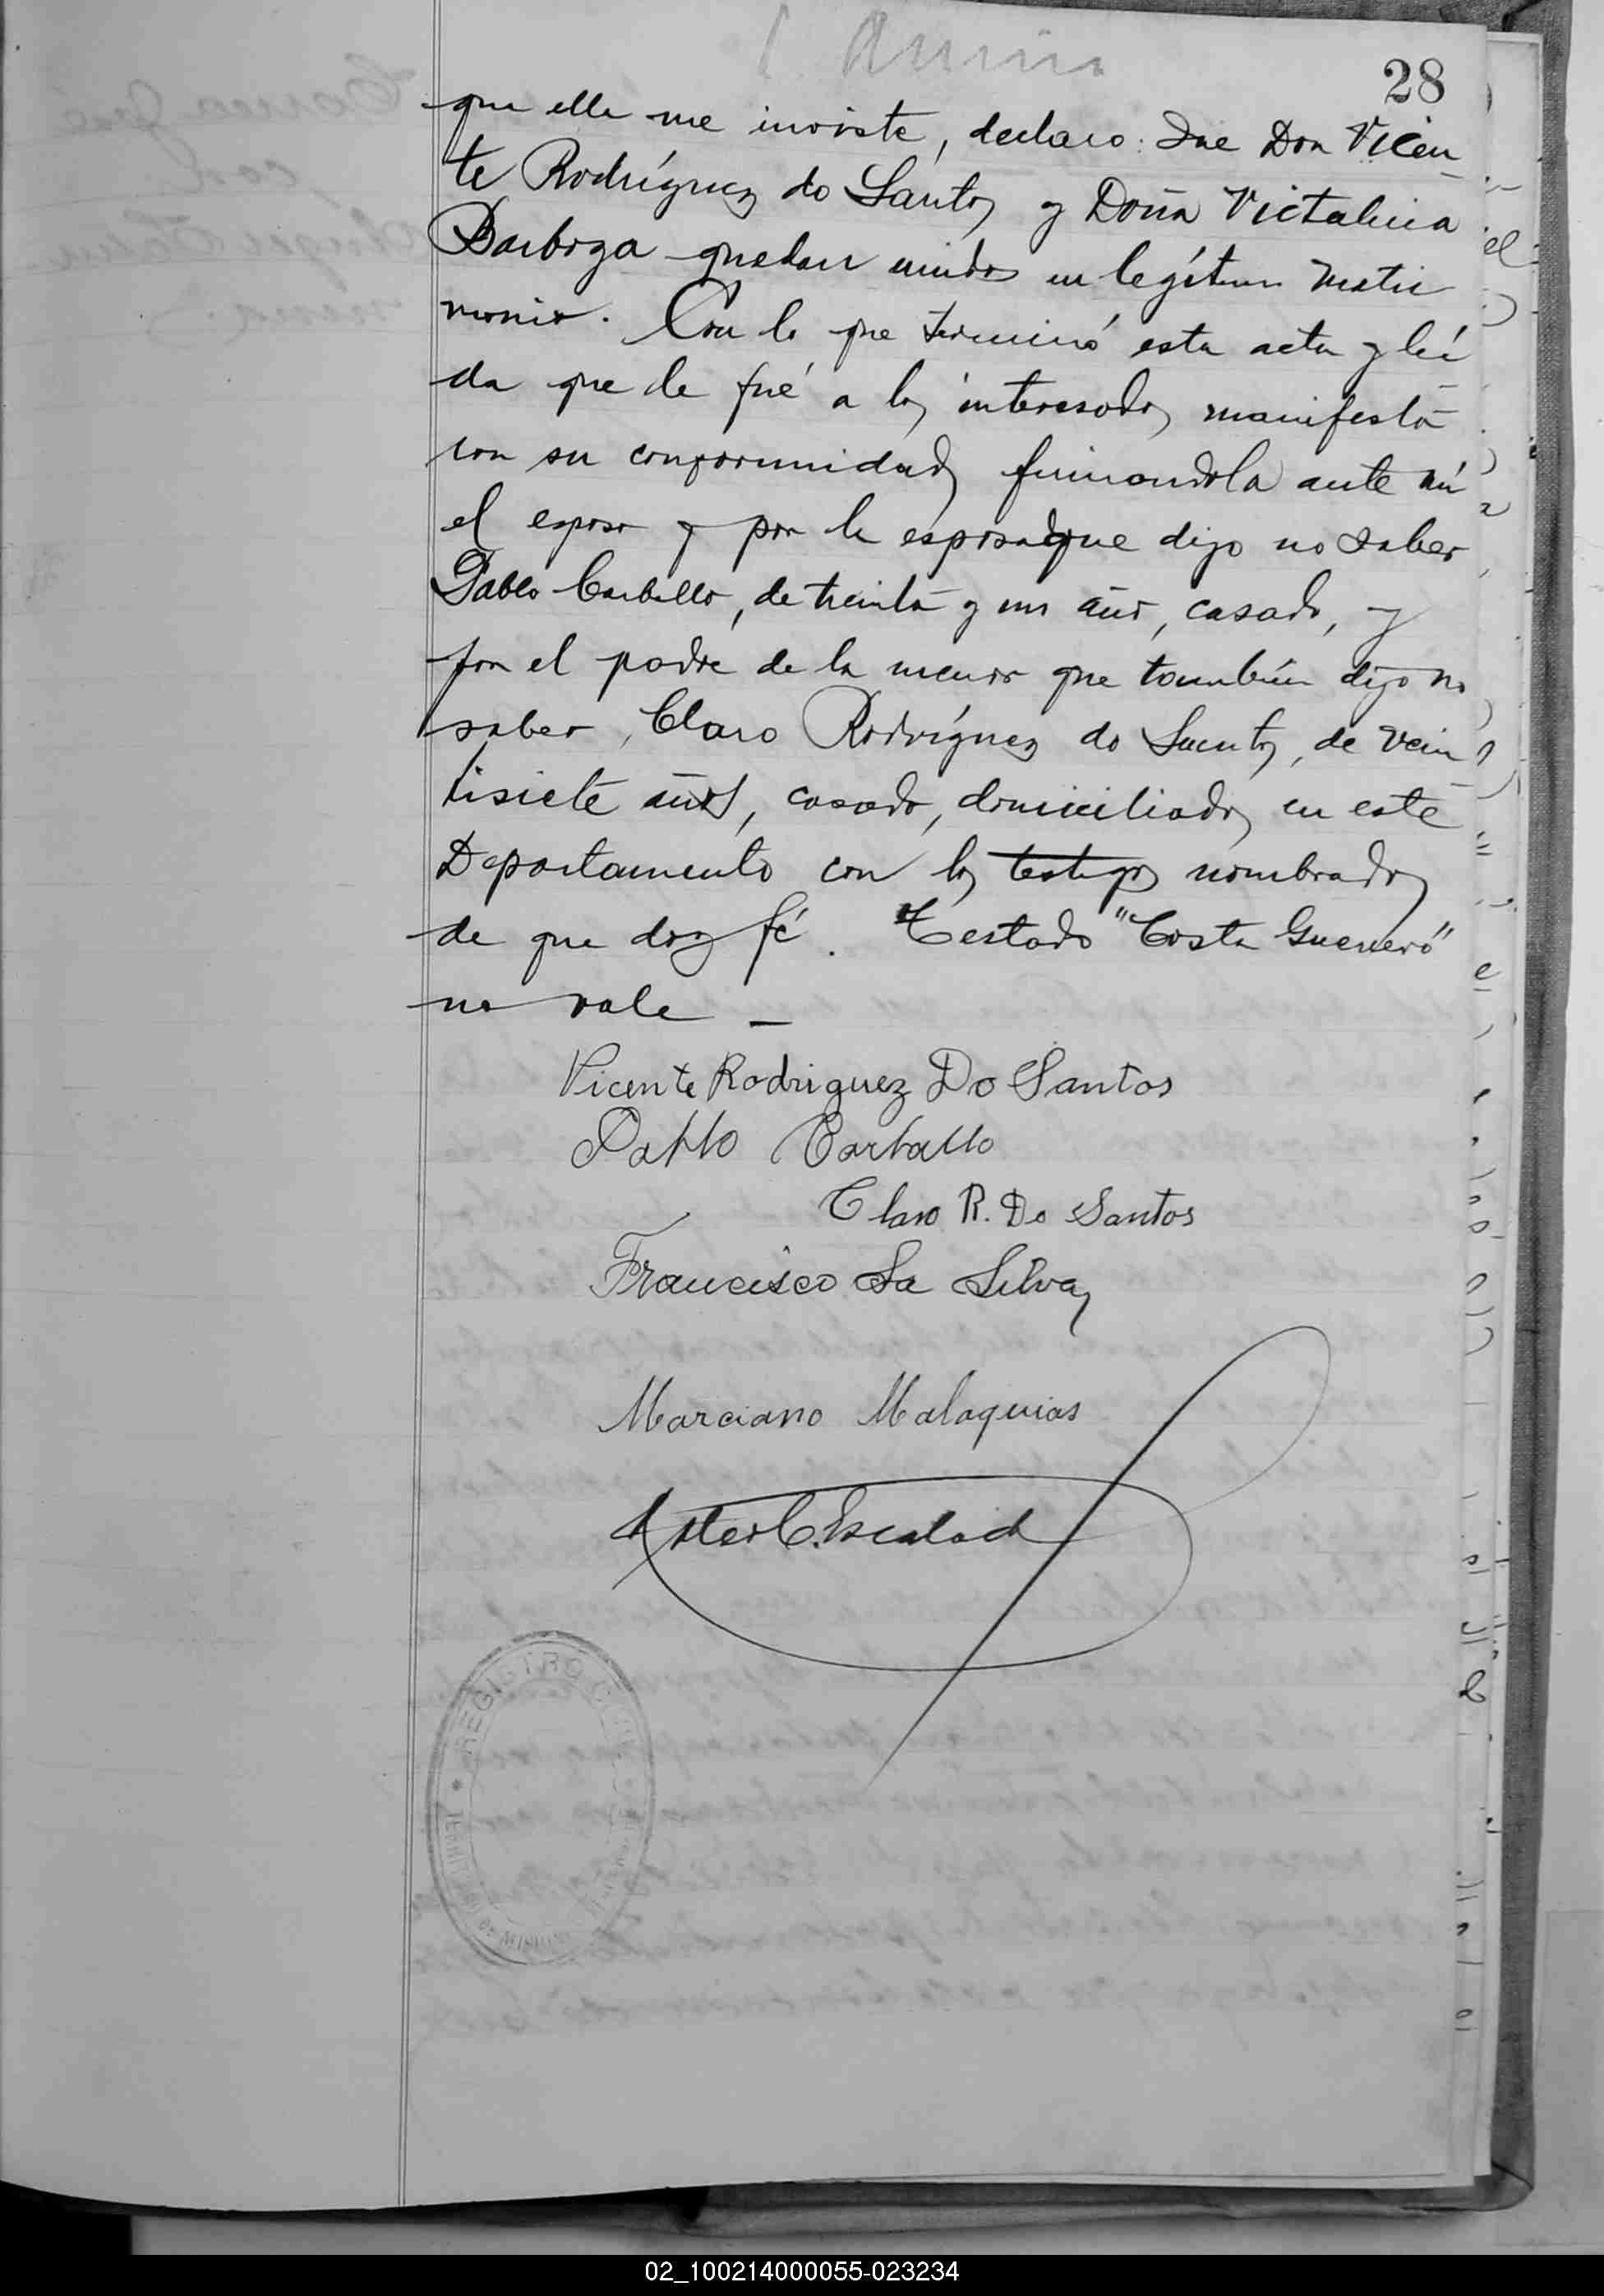 28
que ella me inviste, declaro: Que Don Vicen
te Rodríguez do Santos y Doña Victalina
Barboza quedan unidos en legítimo matri
monio. Con lo que terminó esta acta y leí
da que le fué a los interesados manifesta
ron su conformidad firmandola ante mí
el esposo y por la esposa que dijo no saber
Pablo Carballo, de treinta y un años, casado, y
por el padre de la menor que también dijo no
saber, Claro Rodríguez do Santos, de vein
tisiete años, casado, domiciliados en este
Departamento con los testigos nombrados
de que doy fé. Testado "Costa Guerrero"
no vale —
Vicente Rodriguez Do Santos
Pablo Carballo
Claro R. Do Santos
Francisco Da Silva
Marciano Malaquias
REGISTRO
02_100214000055-023234